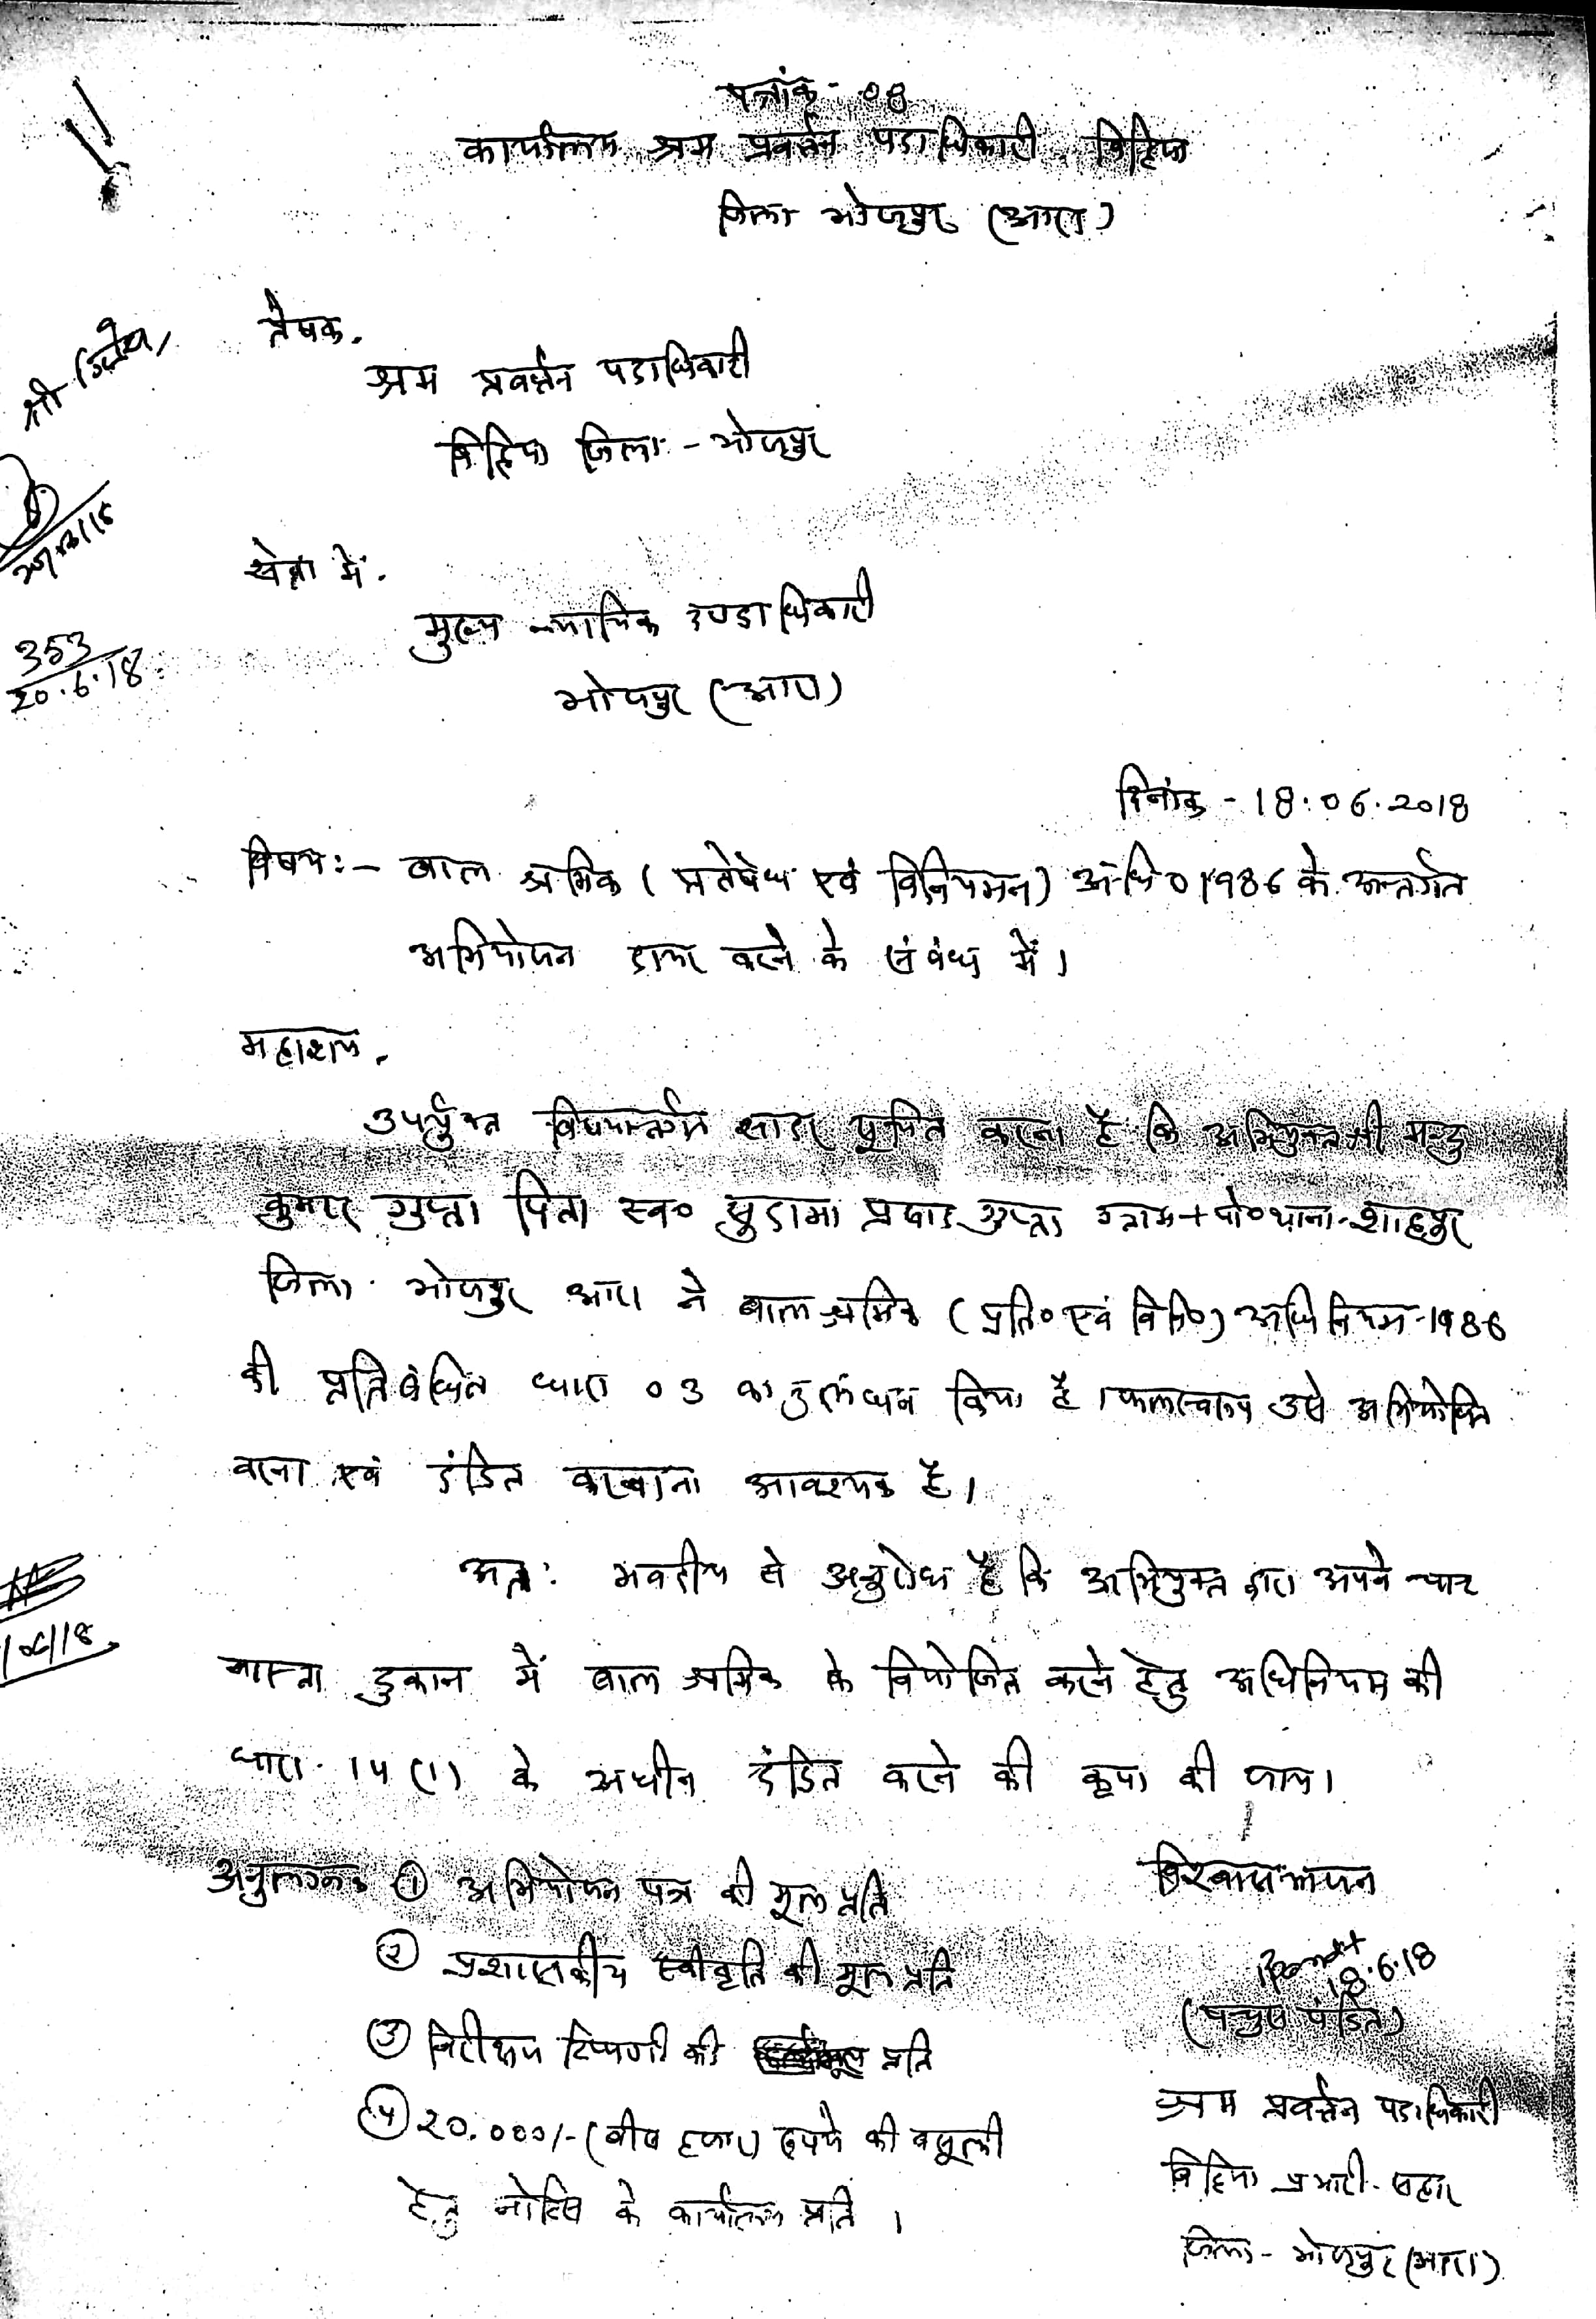 पत्रांक - 08
कार्यालय श्रम प्रवर्त्तन पदाधिकारी, बिहिया
जिला भोजपुर (आरा)
प्रेषक,
श्रम प्रवर्त्तन पदाधिकारी
बिहिया जिला - भोजपुर
सेवा में,
353
20.6.18
मुख्य न्यायिक दण्डाधिकारी
भोजपुर (आरा)
दिनांक - 18.06.2018
विषय :- बाल श्रमिक (प्रतिषेध एवं विनियमन) अधि० 1986 के अन्तर्गत
अभियोजन दायर करने के संबंध में।
महाशय,
उपर्युक्त विषयान्तर्गत सादर सूचित करना है कि अभियुक्त श्री मन्टु
कुमार गुप्ता पिता स्व० सुदामा प्रसाद गुप्ता ग्राम + पो० थाना - शाहपुर
जिला भोजपुर आरा ने बाल श्रमिक (प्रति० एवं विनि०) अधिनियम - 1986
की प्रतिबंधित धारा 03 का उलंघन किया है। फलस्वरूप उसे अभियोजित
करना एवं दंडित करवाना आवश्यक है।
अतः भवदीय से अनुरोध है कि अभियुक्त द्वारा अपने चाय
नास्ता दुकान में बाल श्रमिक के नियोजित करने हेतु अधिनियम की
धारा 14 (1) के अधीन दंडित करने की कृपा की जाय।
अनुलग्नक ① अभियोजन पत्र की मूल प्रति
विश्वासभाजन
② प्रशासकीय स्वीकृति की मूल प्रति
18.6.18
③ निरीक्षण टिप्पणी की प्रति
पंडित)
④ 20,000/- (बीस हजार) रुपये की वसूली
हेतु नोटिस के कार्यालय प्रति।
श्रम प्रवर्त्तन पदाधिकारी
बिहिया प्रभारी - सहार
जिला - भोजपुर (आरा)